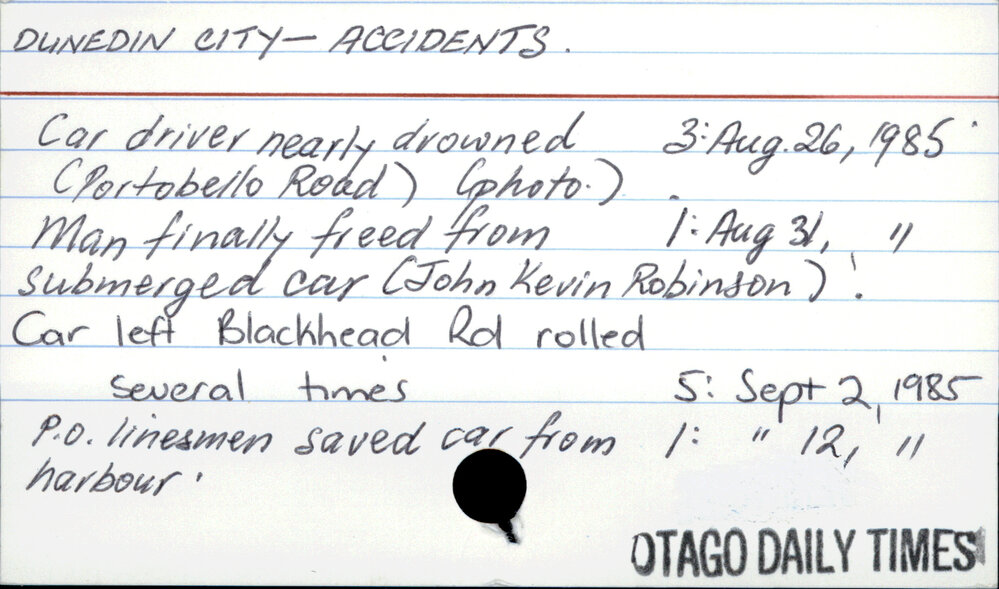 DUNEDIN CITY — ACCIDENTS.
Car driver nearly drowned 3: Aug. 26, 1985
(Portobello Road) (photo.)
Man finally freed from 1: Aug 31, "
submerged car (John Kevin Robinson)
Car left Blackhead Rd rolled
several times 5: Sept 2, 1985
P.O. linesmen saved car from 1: " 12, "
harbour.
OTAGO DAILY TIMES